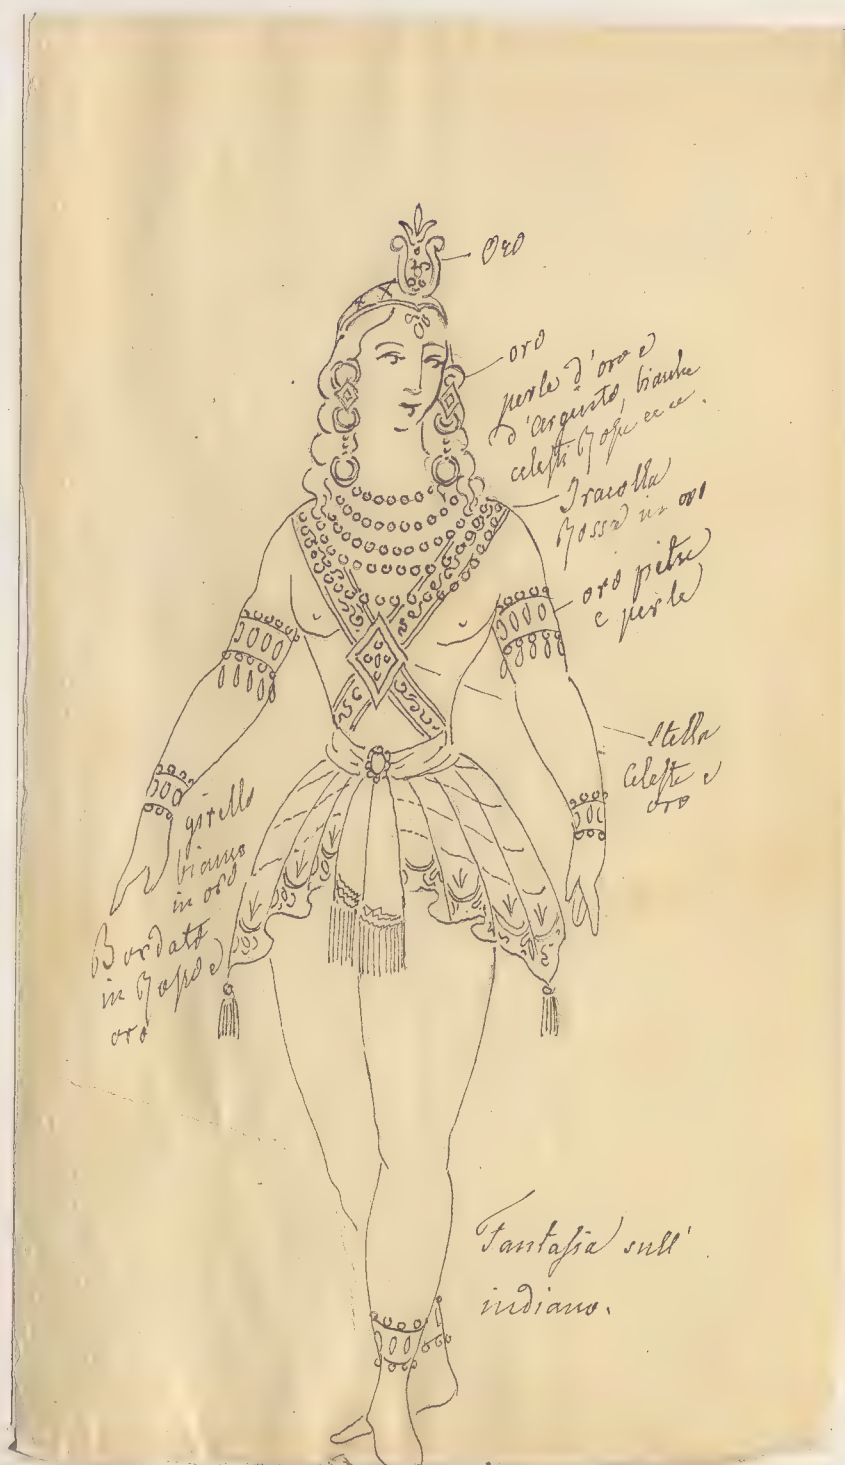 Oro
oro
perle d'oro e
d'argento, bianche
celesti Rosse ec ec.
Tracolla
Rossa in oro
oro pietre
e perle
Stella
Celeste e
oro
girello
bianco
in oro
Bordato
in Rosso e
oro
Fantasia sull'
indiano.